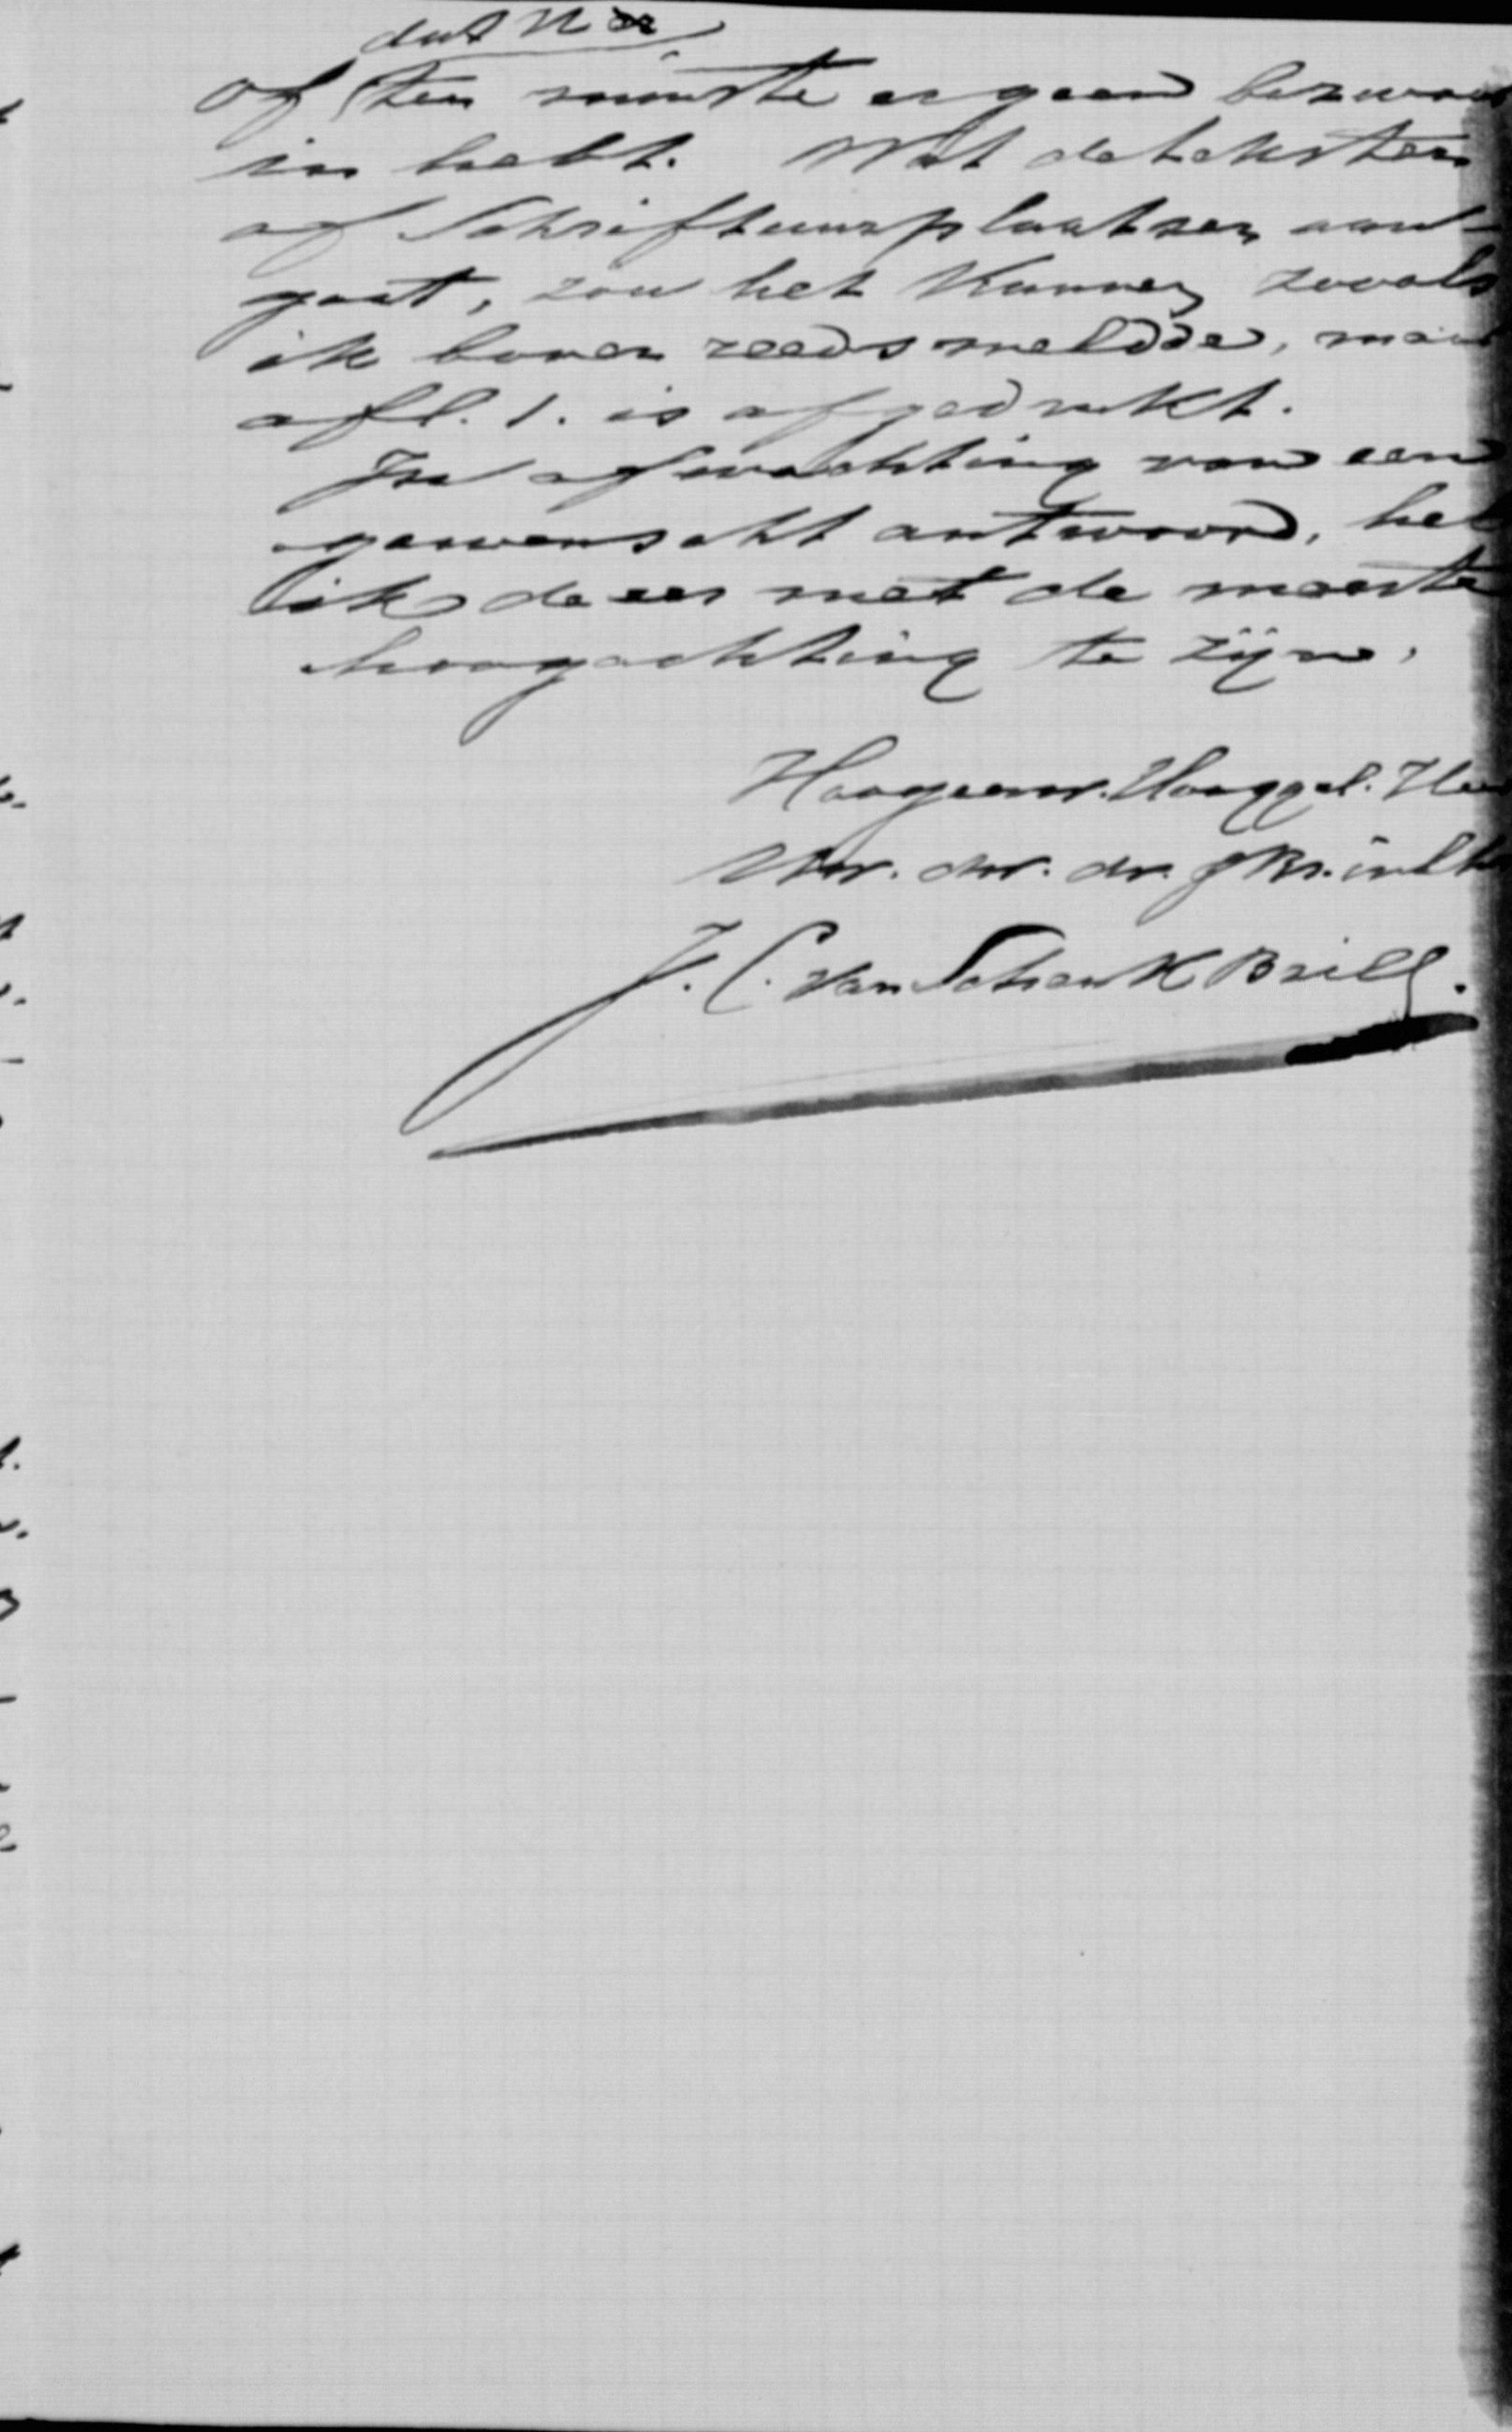 dat U er
of ten minste er geen bezwaar
in hebt. Wat de teksten
of Schriftuurplaatsen aan-
gaat, zou het kunnen zooals
ik boven reeds meldde, maar
afl. 1. is afgedrukt.
In afwachting van een
gewenscht antwoord, heb
ik de eer met de meeste
hoogachting te zijn,
Hoogeerw. Hooggel. Heer
Uw. dw. dr.
J. C. van Schenk Brill.